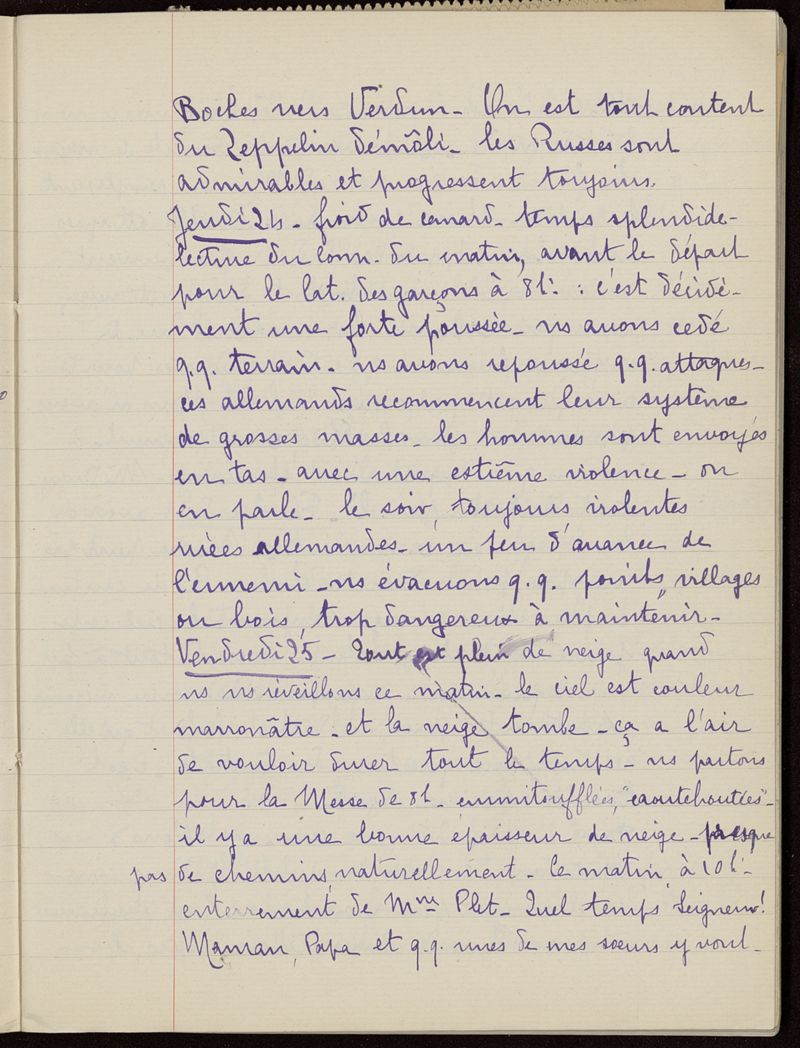 Boches vers Verdun_ On est tout content
du Zeppelin démoli_ les Russes sont
admirables et progressent toujours.
Jeudi 24_ froid de canard_ temps splendide_
lecture du com. du matin, avant le départ
pour le lat. des garçons à 8h. : c'est décidé-
ment une forte poussée_ ns avons cédé
q.q. terrain_ ns avons repoussé q.q. attaques_
ces allemands recommencent leur système
de grosses masses_ les hommes sont envoyés
en tas_ avec une extrême violence_ on
en parle_ le soir, toujours violentes
ruées allemandes_ un peu d'avance de
l'ennemi_ ns évacuons q.q. points, villages
ou bois, trop dangereux à maintenir_
Vendredi 25_ Tout est plein de neige quand
ns ns réveillons ce matin_ le ciel est couleur
marronâtre_ et la neige tombe_ ça a l'air
de vouloir durer tout le temps_ ns partons
pour la Messe de 8h_ emmitoufflées, "caoutchoutées"_
il y a une bonne épaisseur de neige_ presque
pas de chemins, naturellement_ Ce matin, à 10h_
enterrement de Mme Plet_ Quel temps Seigneur!
Maman, Papa et q.q. unes de mes soeurs y vont_